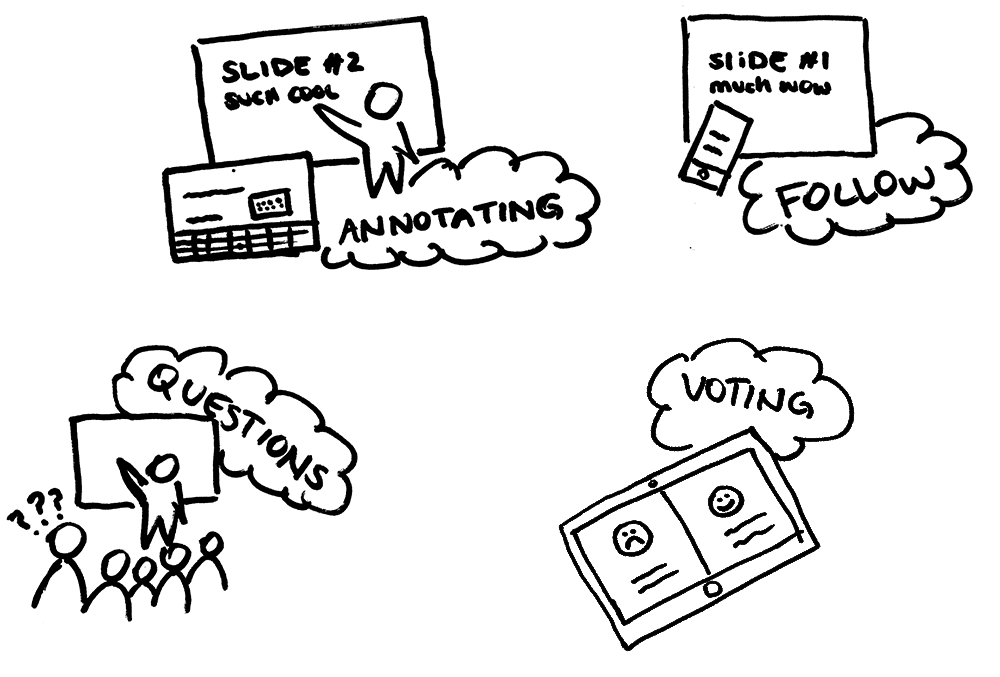 SLIDE #2
SUCH COOL
ANNOTATING
SLiDE #1
much wow
FOLLOW
QUESTIONS
???
VOTING